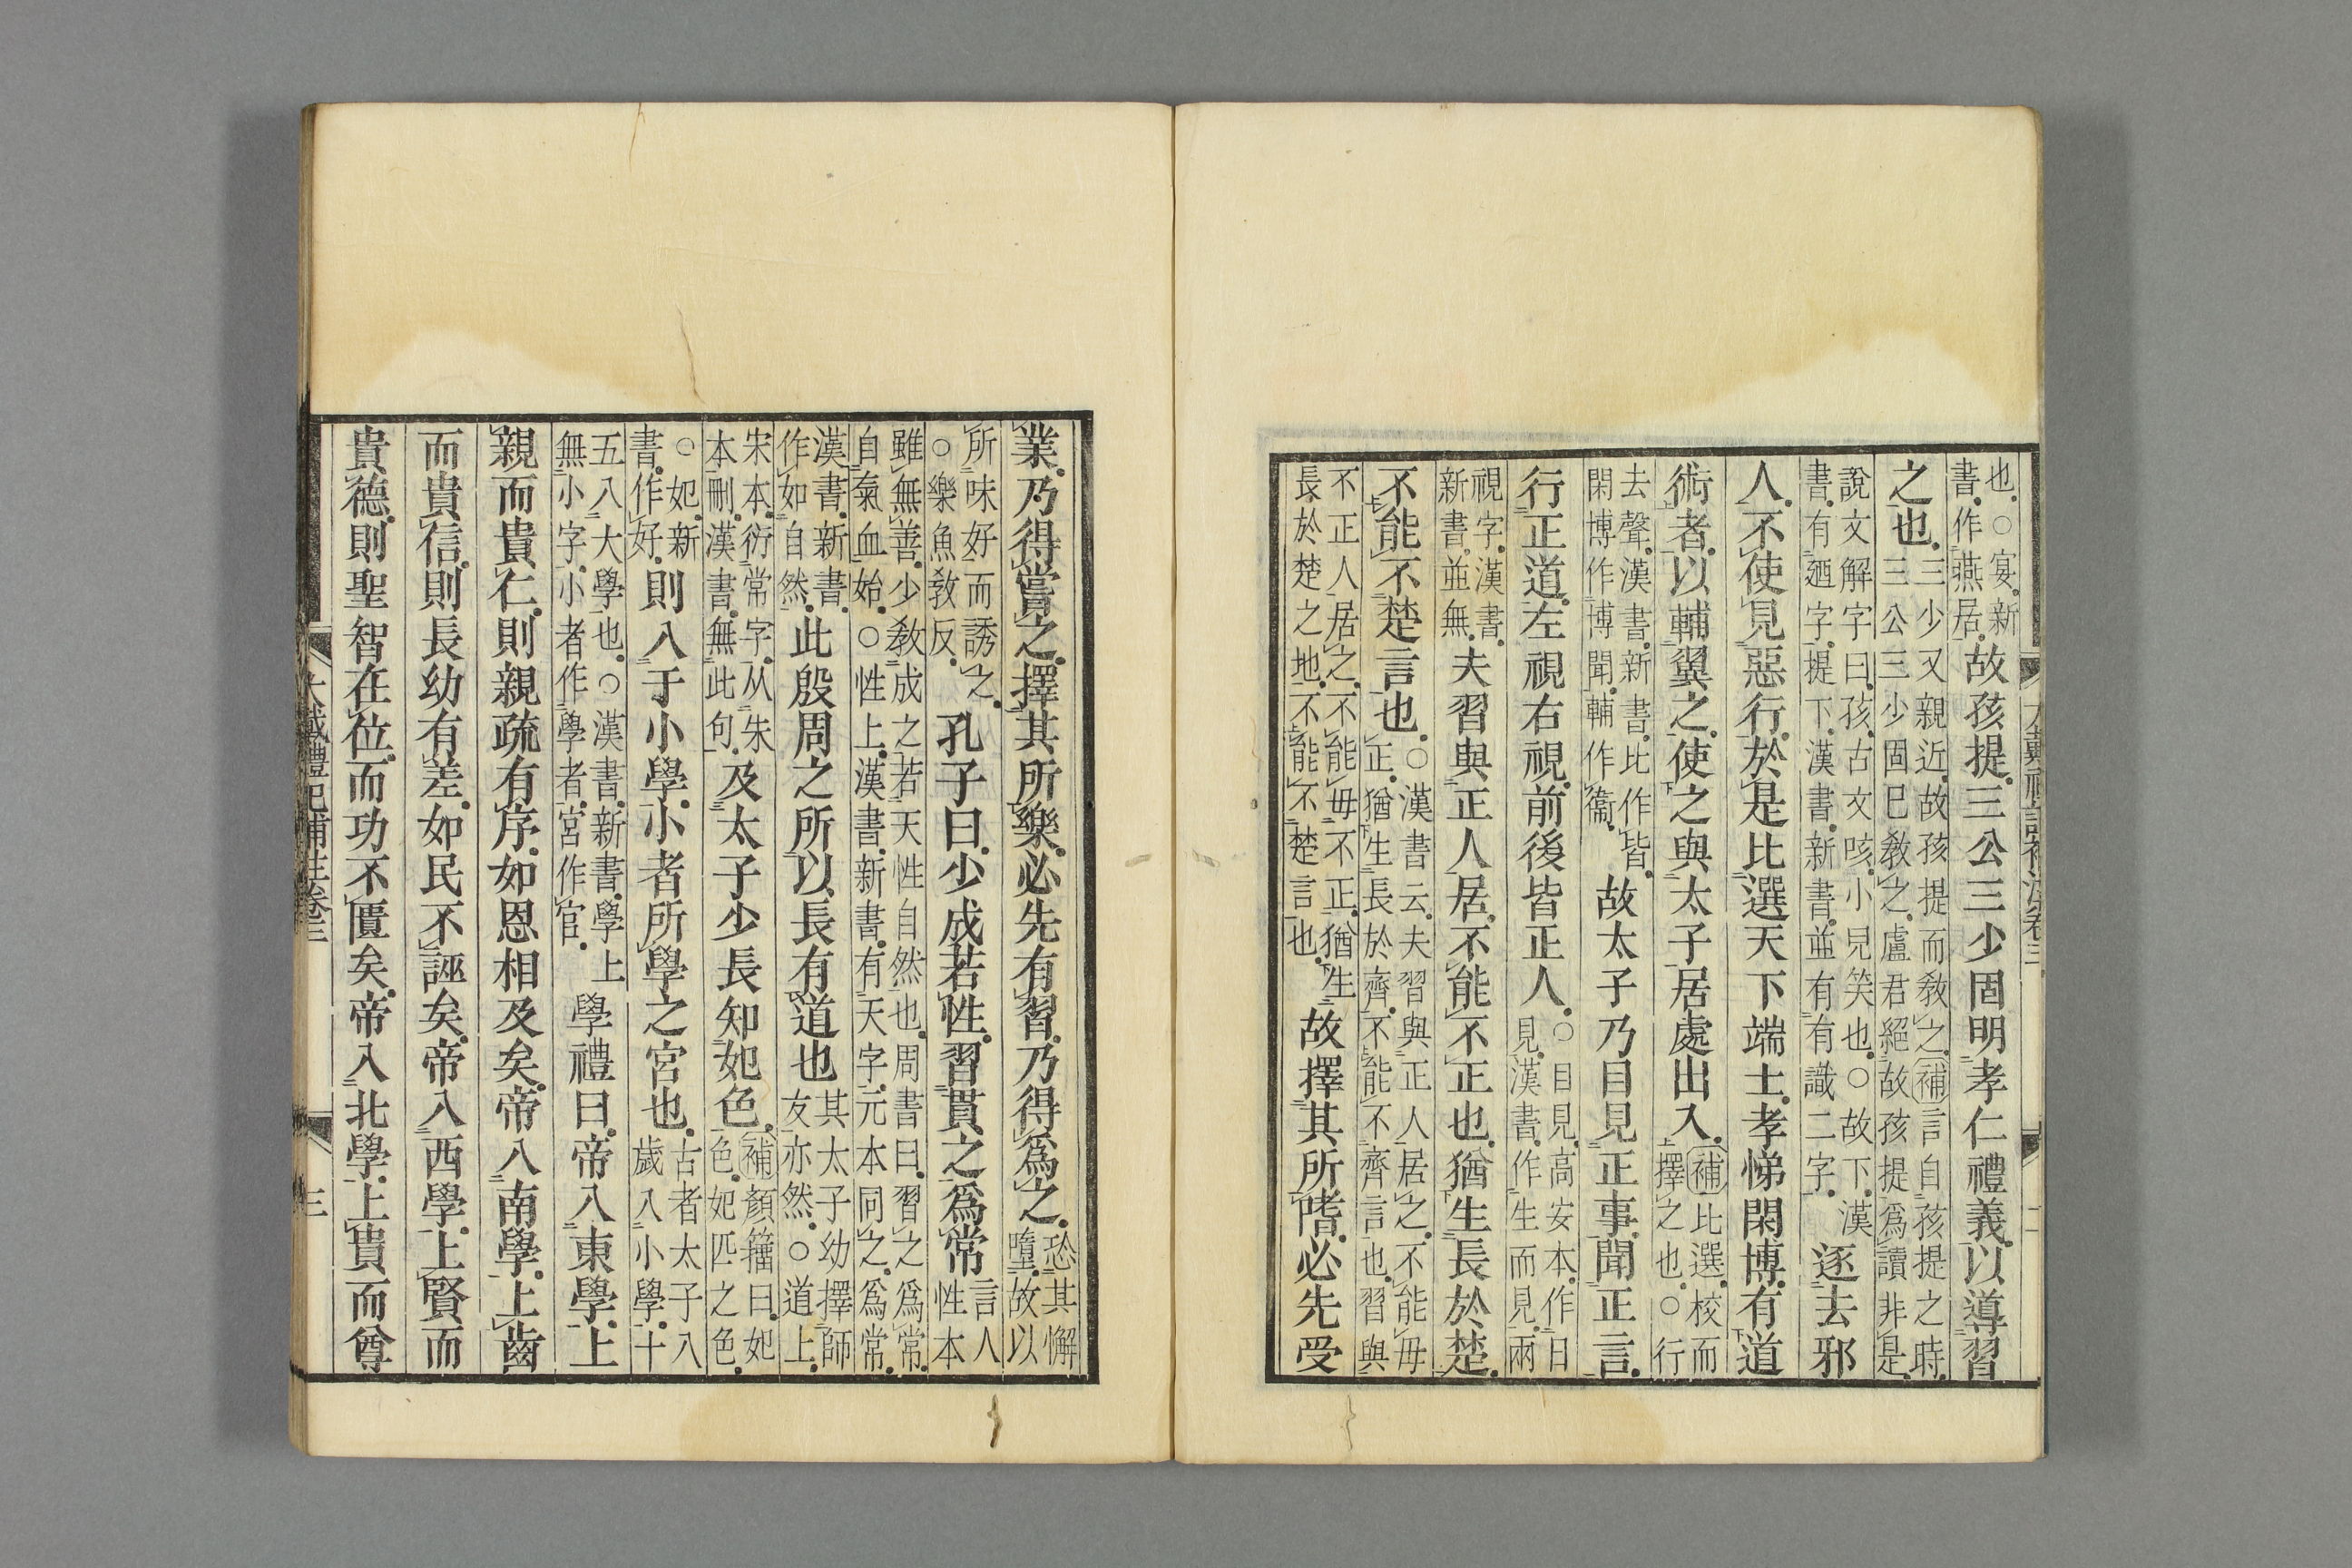 也。○宴。新
書。作燕居。故孩提。三公三少固明孝仁禮義。以導習
之也。三少又親近。故孩提而敎之。補言自孩提之時。
三公三少固巳敎之。盧君絕故孩提爲讀非是。
說文解字曰。孩。古文咳。小兒笑也。○故下。漢
書。有迺字。提下。漢書。新書。並有有識二字。逐去邪
人。不使見惡行。於是比選天下端士。孝悌閑博。有道
術者。以輔翼之。使之與太子居處出入。補比選。校而
擇之也。○行
去聲。漢書。新書。比作皆。
閑博作博聞。輔作衞。故太子乃目見正事。聞正言。
行正道。左視右視。前後皆正人。○目見。高安本。作日
見。漢書。作生而見。兩
視字。漢書。
新書。並無。夫習與正人居。不能不正也。猶生長於楚。
不能不楚言也。○漢書云。夫習與正人居之。不能毋
正。猶生長於齊。不能不齊言也。習與
不正人居之。不能毋不正。猶生
長於楚之地。不能不楚言也。故擇其所嗜。必先受
大戴禮記補注卷三
業。乃得嘗之。擇其所樂。必先有習。乃得爲之。恐其懈
墮。故以
所味好而誘之。
○樂魚敎反。孔子曰。少成若性。習貫之爲常。言人
性本
雖無善。少敎成之。若天性自然也。周書曰。習之爲常。
自氣血始。○性上。漢書。新書。有天字。元本同之。爲常。
漢書。新書。
作如自然。此殷周之所以長有道也。其太子幼擇師
友亦然。○道上。
宋本。衍常字。从朱
本刪。漢書。無此句。及太子少長知妃色。補顏籀曰。妃
色。妃匹之色。
○妃。新
書。作好。則入于小學。小者所學之宮也。古者太子八
歲入小學。十
五入大學也。○漢書。新書。學上
無小字。小者作學者。宮作官。學禮曰。帝入東學。上
親而貴仁。則親疏有序。如恩相及矣。帝入南學。上齒
而貴信。則長幼有差。如民不誣矣。帝入西學。上賢而
貴德。則聖智在位。而功不匱矣。帝入北學。上貴而尊
大戴禮記補注卷三
三